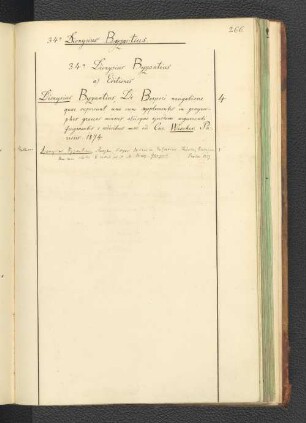 266
34ᵃ Dionysius Byzantius.
34ᵃ Dionysius Byzantius
a) Editiones
Dionysius Byzantius De Bospori navigatione 4
quae supersunt una cum supplementis in geogra-
phos graecos minores aliisque ejusdem argumenti
fragmentis e codicibus mss. ed. Car. Wescher. Pa-
risiis. 1874.
Dionysii Byzantii